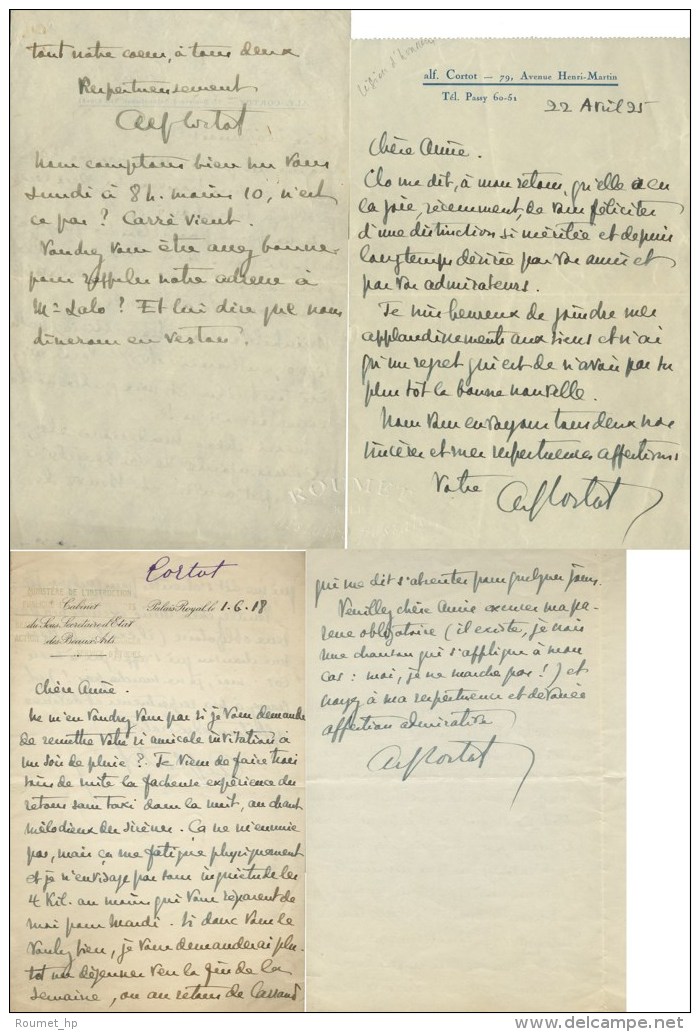 tout notre coeur, à tous deux
Respectueusement
Alf Cortot
Nous comptons bien sur Vous
Lundi à 8h. moins 10, n'est
ce pas ? Carré vient.
Voudrez Vous être assez bonne
pour rappeler notre adresse à
Mr Lalo ? Et lui dire que nous
dinerons en veston.
Légion d'honneur
alf. Cortot — 79, Avenue Henri-Martin
Tél. Passy 60-51
22 Avril 25
Chère Amie.
Clo me dit, à mon retour, qu'elle a eu
la joie, récemment de vous féliciter
d'une distinction si méritée et depuis
longtemps désirée par vos amis et
par vos admirateurs.
Je suis heureux de joindre mes
applaudissements aux siens et n'ai
qu'un regret qui est de n'avoir pas su
plus tôt la bonne nouvelle.
Nous vous envoyons tous deux nos
sincères et mes respectueuses affections
Votre Alf Cortot
ROUMET
Cortot
MINISTÈRE DE L'INSTRUCTION
Cabinet
du Sous Secrétaire d'Etat
des Beaux-Arts
Palais Royal, le 1.6.18
Chère Amie.
Ne m'en Voudrez Vous pas si je Vous demande
de remettre Votre si amicale invitation à
un soir de pluie ? Je Viens de faire trois
soirs de suite la facheuse expérience du
retour sans taxi dans la nuit, au chant
mélodieux des sirènes. Ça ne m'ennuie
pas, mais ça me fatigue physiquement
et je n'envisage pas sans inquiétude les
4 Kil. au moins qui Vous séparent de
moi pour Mardi. Si donc Vous le
Voulez bien, je Vous demanderai plu-
tot un déjeuner vers la fin de la
semaine, ou au retour de
qui me dit s'absenter pour quelques jours.
Veuillez chère Amie excuser ma pa-
resse obligatoire (il existe, je sais
une chanson qui s'applique à mon
cas : moi, je ne marche pas !) et
croyez à ma respectueuse et dévouée
affection admiration
Alf Cortot
Roumet_hp